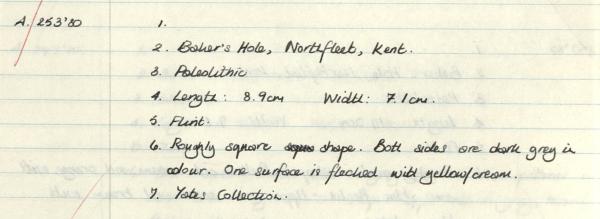 A. 253'80 1.
2. Baker's Hole, Northfleet, Kent.
3. Paleolithic
4. Length: 8.9cm Width: 7.1cm.
5. Flint.
6. Roughly square shape. Both sides are dark grey in
colour. One surface is flecked with yellow/cream.
7. Yates Collection.